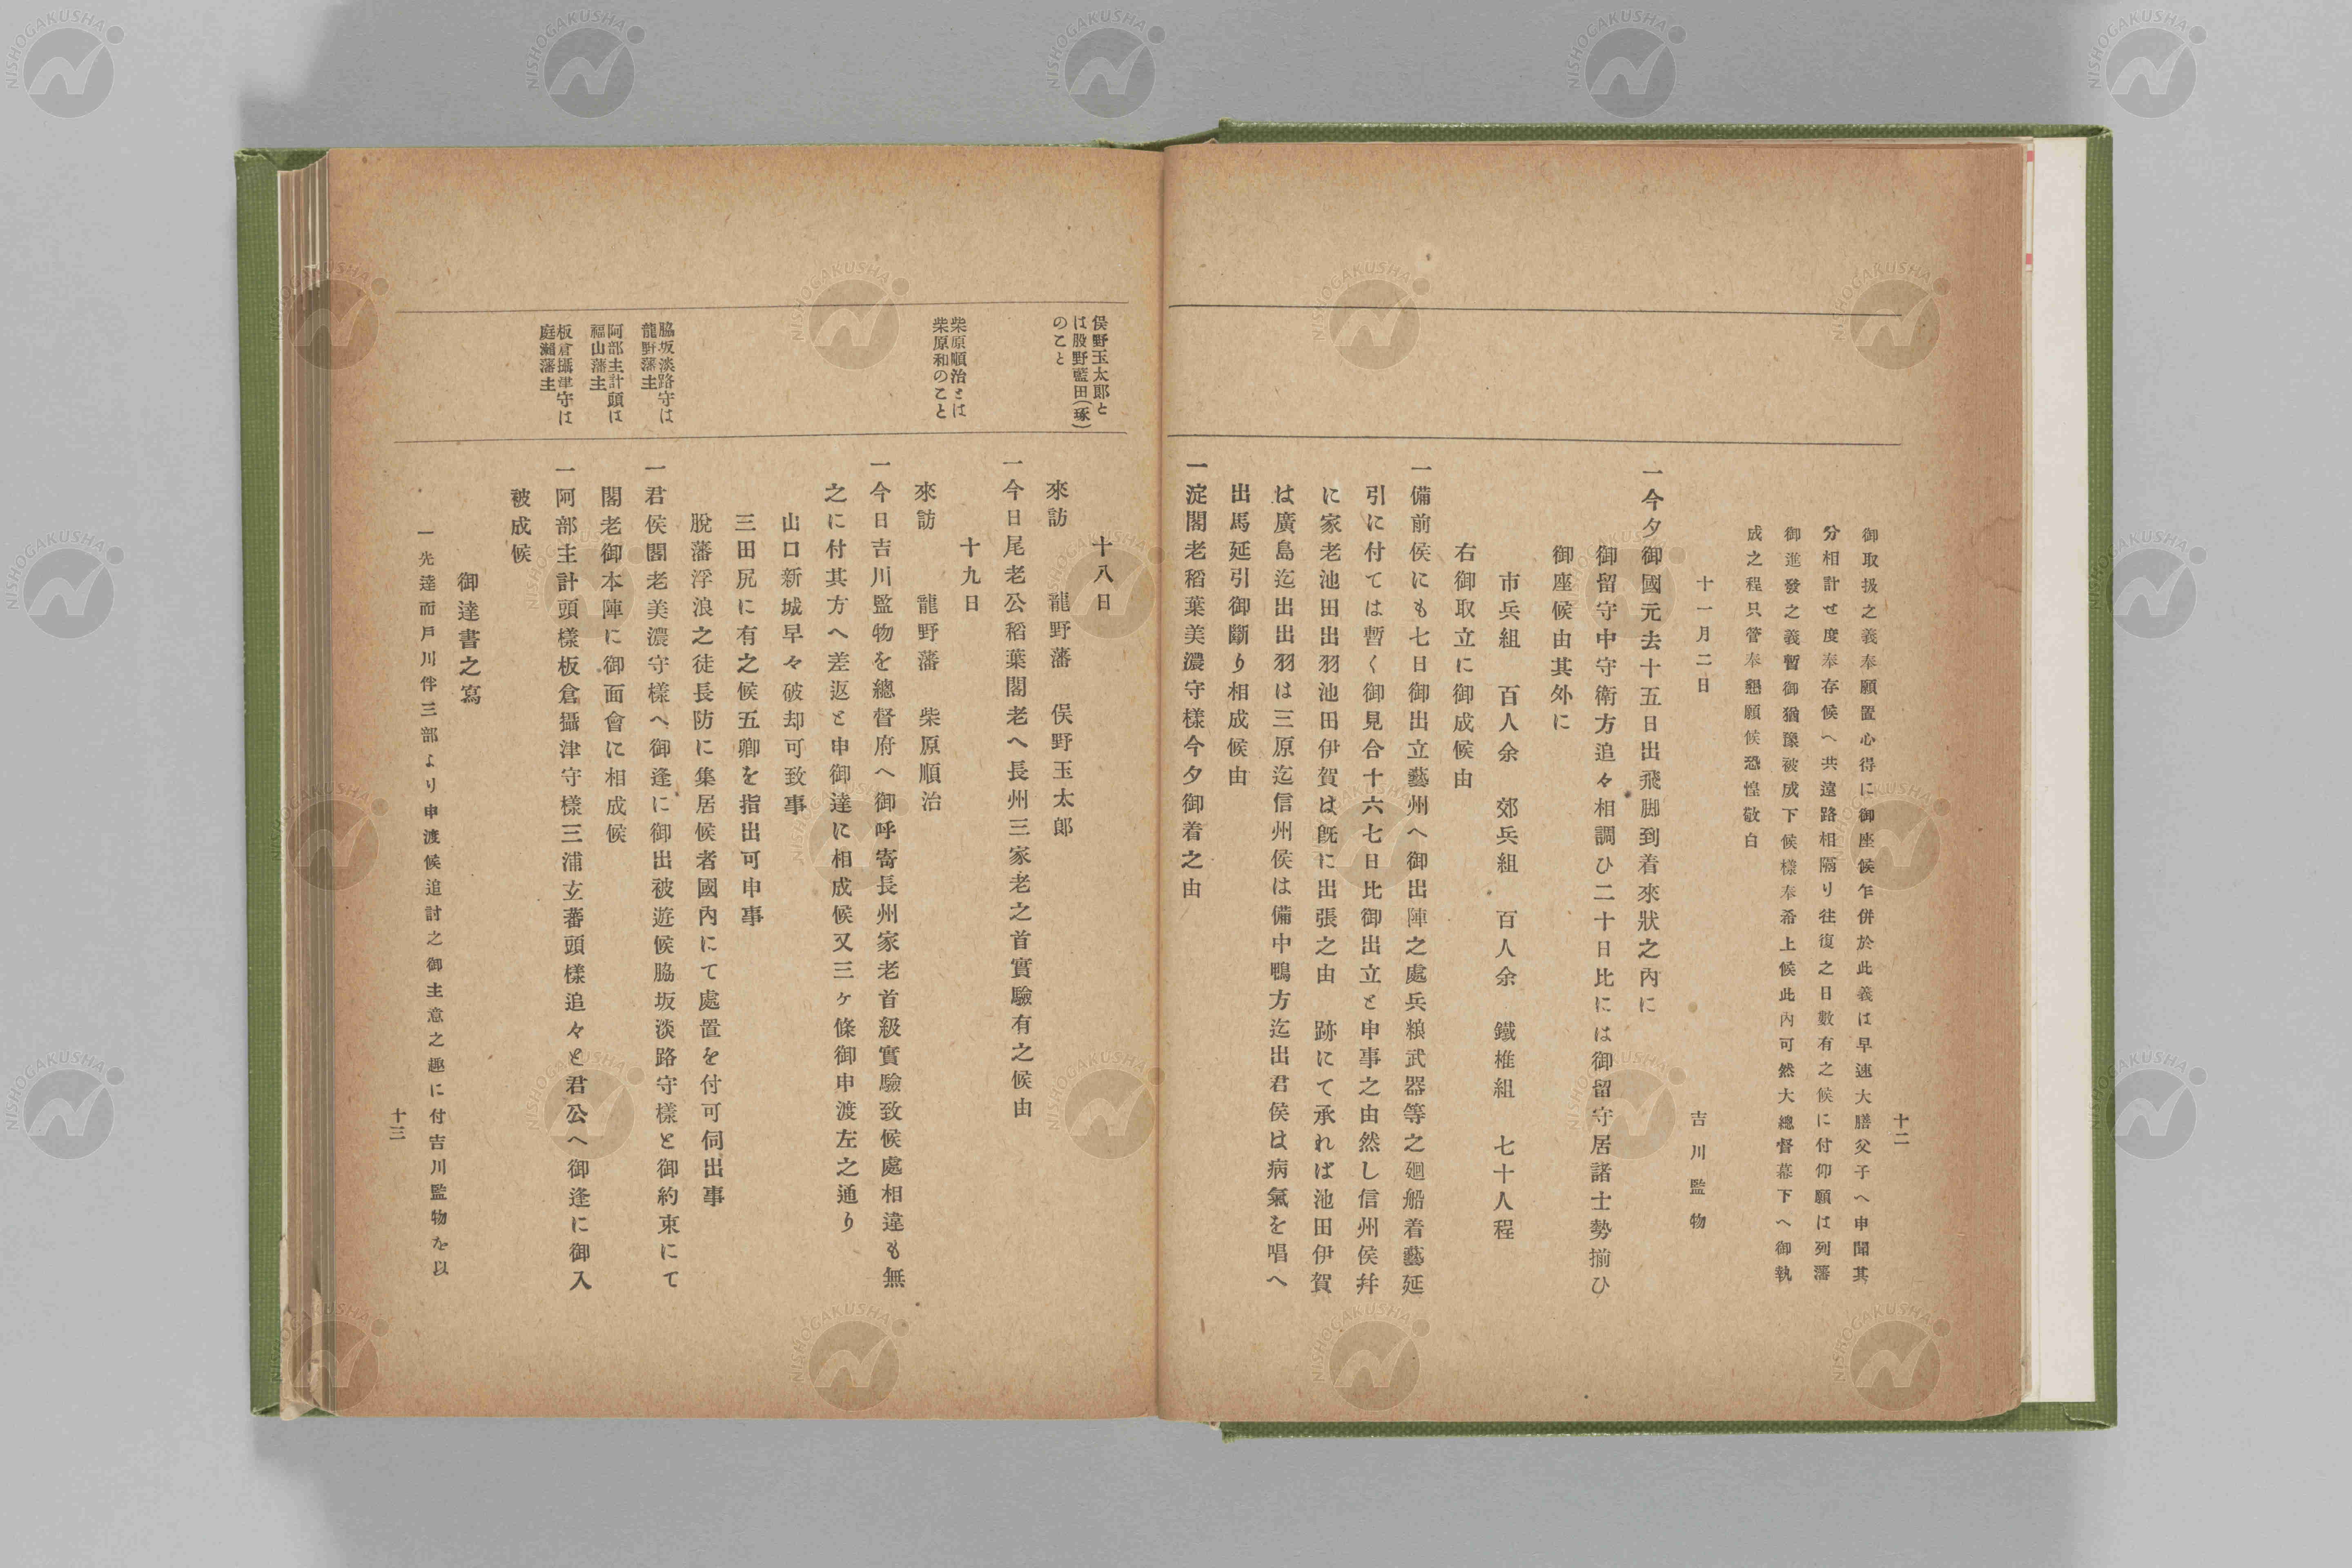 御取扱之義奉願置心得に御座候乍併於此義は早速大膳父子へ申聞其
分相計せ度奉存候へ共遠路相隔り往復之日數有之候に付仰願は列藩
御進發之義暫御猶豫被成下候樣奉希上候此內可然大總督幕下へ御執
成之程只管奉懇願候恐惶敬白
十一月二日
吉川監物
一今夕御國元去十五日出飛脚到着來狀之內に
御留守中守衛方追々相調ひ二十日比には御留守居諸士勢揃ひ
御座候由其外に
市兵組 百人余 郊兵組 百人余 鐵椎組 七十人程
右御取立に御成候由
一備前侯にも七日御出立藝州へ御出陣之處兵粮武器等之廻船着藝延
引に付ては暫く御見合十六七日比御出立と申事之由然し信州侯幷
に家老池田出羽池田伊賀は既に出張之由 跡にて承れば池田伊賀
は廣島迄出出羽は三原迄信州侯は備中鴨方迄出君侯は病氣を唱へ
出馬延引御斷り相成候由
一淀閣老稻葉美濃守樣今夕御着之由
十二
俣野玉太郎と
は股野藍田(琢)
のこと
柴原順治とは
柴原和のこと
脇坂淡路守は
龍野藩主
阿部主計頭は
福山藩主
板倉攝津守は
庭瀨藩主
十八日
來訪 龍野藩 俣野玉太郎
一今日尾老公稻葉閣老へ長州三家老之首實驗有之候由
十九日
來訪 龍野藩 柴原順治
一今日吉川監物を總督府へ御呼寄長州家老首級實驗致候處相違も無
之に付其方へ差返と申御達に相成候又三ヶ條御申渡左之通り
山口新城早々破却可致事
三田尻に有之候五卿を指出可申事
脫藩浮浪之徒長防に集居候者國內にて處置を付可伺出事
一君侯閣老美濃守樣へ御逢に御出被遊候脇坂淡路守樣と御約束にて
閣老御本陣に御面會に相成候
一阿部主計頭樣板倉攝津守樣三浦玄蕃頭樣追々と君公へ御逢に御入
被成候
御達書之寫
一先達而戶川伴三部より申渡候追討之御主意之趣に付吉川監物を以
十三
NISHOGAKUSHA